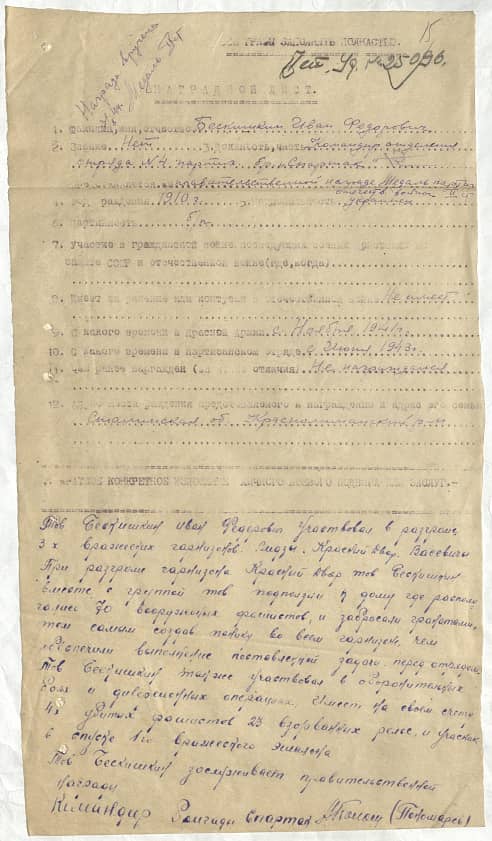 15
Уд. № 250/96.
Награда вручена
Медаль
НАГРАДНОЙ ЛИСТ.
1. Фамилия, имя, отчество Бескишкин Иван Федорович
2. Звание Нет 3. Должность, часть Командир отделения
отряда № 4 партиз. бр. "Спартак"
правительственной награде Медаль партиз.
отечеств. войны II ст.
4. Год рождения 1910 г. 5. Национальность украинец
6. Партийность б/п.
7. Участие в гражданской войне последующих боевых действиях по
защите СССР и отечественной войне (где, когда)
8. Имеет ли ранение или контузии в отечественной войне Не имеет
9. С какого времени в Красной Армии с Ноября 1941 г.
10. С какого времени в партизанском отряде с Июня 1943 г.
11. Чем ранее награжден (за какие отличия) Не награждался
12. представляемого к награждению и адрес его семьи
Сталинская об. Краснолиманский р-н
КРАТКОЕ КОНКРЕТНОЕ ИЗЛОЖЕНИЕ ЛИЧНОГО БОЕВОГО ПОДВИГА ИЛИ ЗАСЛУГ.-
Тов Бескишкин Иван Федорович участвовал в разгроме
3х вражеских гарнизонов Красный Двор, Васевичи
При разгроме гарнизона Красный Двор тов Бескишкин
вместе с группой тов подползли к дому где распола
гались 70 вооруженых фашистов, и забросали гранатами,
тем самым создав панику во всем гарнизоне, чем
обеспечили выполнение поставленной задачи перед отрядом.
Тов Бескишкин также участвовал в оборонительных
боях и диверсионных операциях. Имеет на своем счету
4х убитых фашистов 23 взорванных рельс, и участник
в спуске 1го вражеского эшелона
Тов Бескишкин заслуживает правительственной
награды
Командир Бригады Спартак (Пономарев)